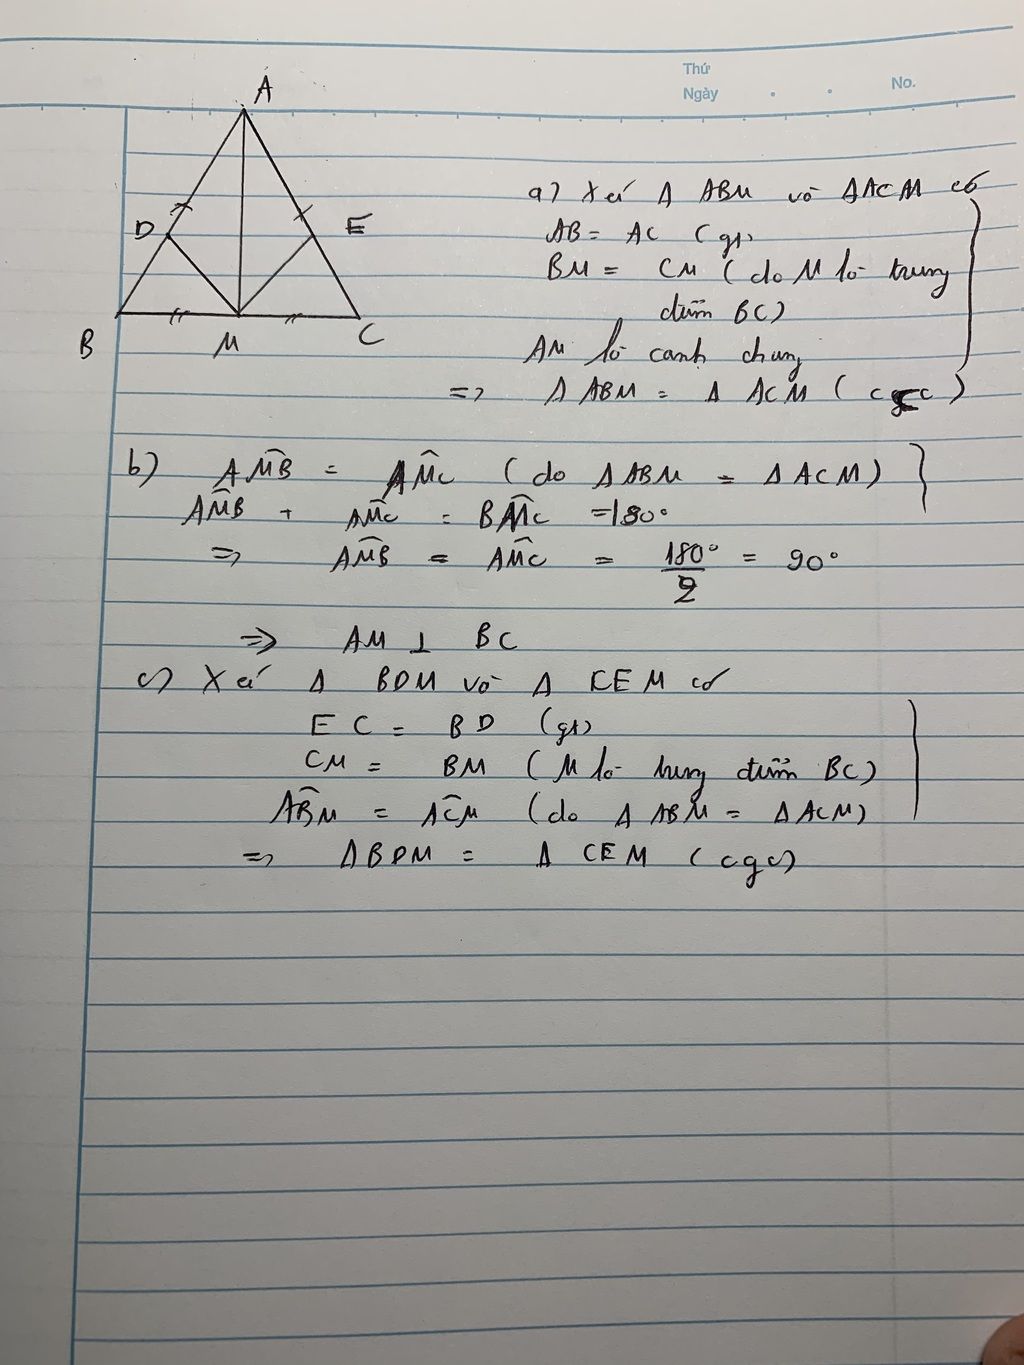 Thứ
Ngày
No.
A
D
E
B
M
C
a) Xét Δ ABM và ΔACM có
AB = AC (gt)
BM = CM (do M là trung
điểm BC)
AM là cạnh chung
=> Δ ABM = Δ ACM (ccc)
b) AM̂B = AM̂C (do Δ ABM = ΔACM)
AM̂B + AM̂C = BM̂C = 180°
=> AM̂B = AM̂C = 180°/2 = 90°
=> AM ⊥ BC
c) Xét Δ BDM và Δ CEM có
EC = BD (gt)
CM = BM (M là trung điểm BC)
AB̂M = AĈM (do Δ ABM = ΔACM)
=> ΔBDM = Δ CEM (cgc)